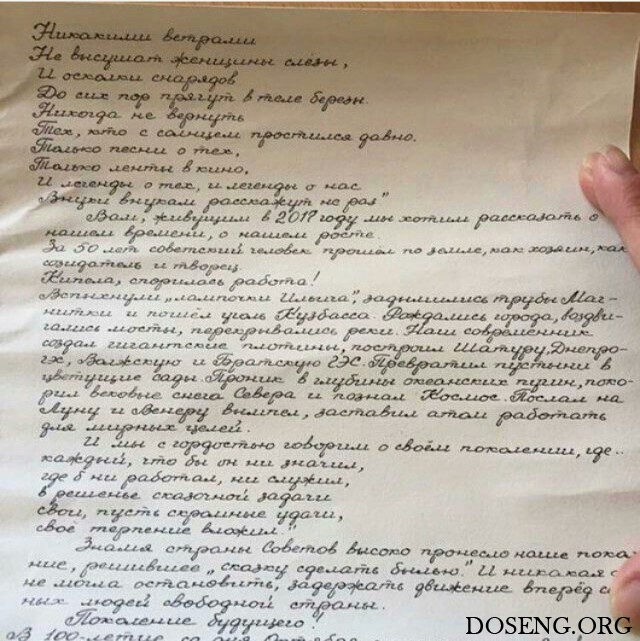 Никакими ветрами
Не высушат женщины слёзы,
И осколки снарядов
До сих пор прячут в теле березы.
Никогда не вернуть
Тех, кто с солнцем простился давно.
Только песни о тех,
Только ленты в кино,
И легенды о тех, и легенды о нас
Внуки внукам расскажут не раз"
Вам, живущим в 2017 году мы хотим рассказать о
нашем времени, о нашем росте.
За 50 лет советский человек прошёл по земле, как хозяин, как
созидатель и творец.
Кипела, спорилась работа!
Вспыхнули „лампочки Ильича", задымились трубы Маг-
нитки и пошёл уголь Кузбасса. Рождались города, воздви-
гались мосты, перекрывались реки. Наш современник
создал гигантские плотины, построил Шатуру, Днепро-
гэс, Волжскую и Братскую ГЭС. Превратил пустыни в
цветущие сады. Проник в глубины океанских пучин, поко-
рил вековые снега Севера и познал Космос. Послал на
Луну и Венеру вымпел, заставил атом работать
для мирных целей.
И мы с гордостью говорим о своём поколении, где..
каждый, что бы он ни значил,
где б ни работал, ни служил,
в решенье сказочной задачи
свои, пусть скромные удачи,
своё терпение вложил."
Знамя страны Советов высоко пронесло наше поко
ние, решившее „сказку сделать былью." И никакая с
не могла остановить, задержать движение вперёд с
ных людей свободной страны.
Поколение будущего!
В 100-летие со дня Октября
DOSENG.ORG